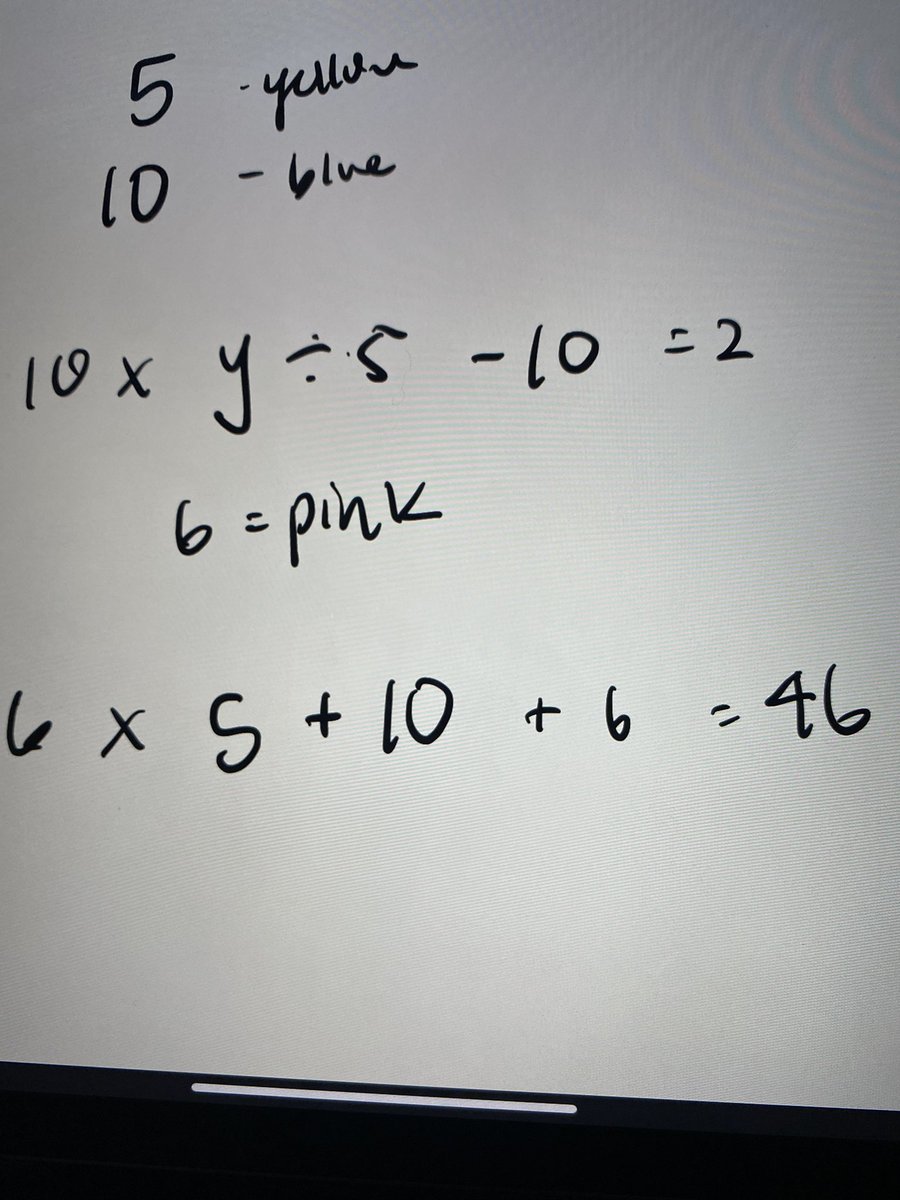 5 - yellow
10 - blue
10 x y ÷ 5 - 10 = 2
6 = pink
6 x 5 + 10 + 6 = 46